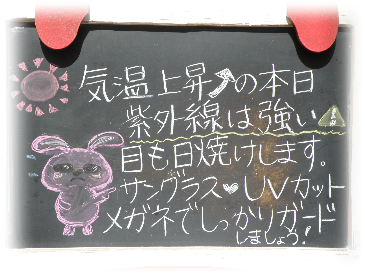 気温上昇⤴の本日
紫外線は強い⚠
目も日焼けします。
サングラス♥UVカット
メガネでしっかりガード
しましょう!